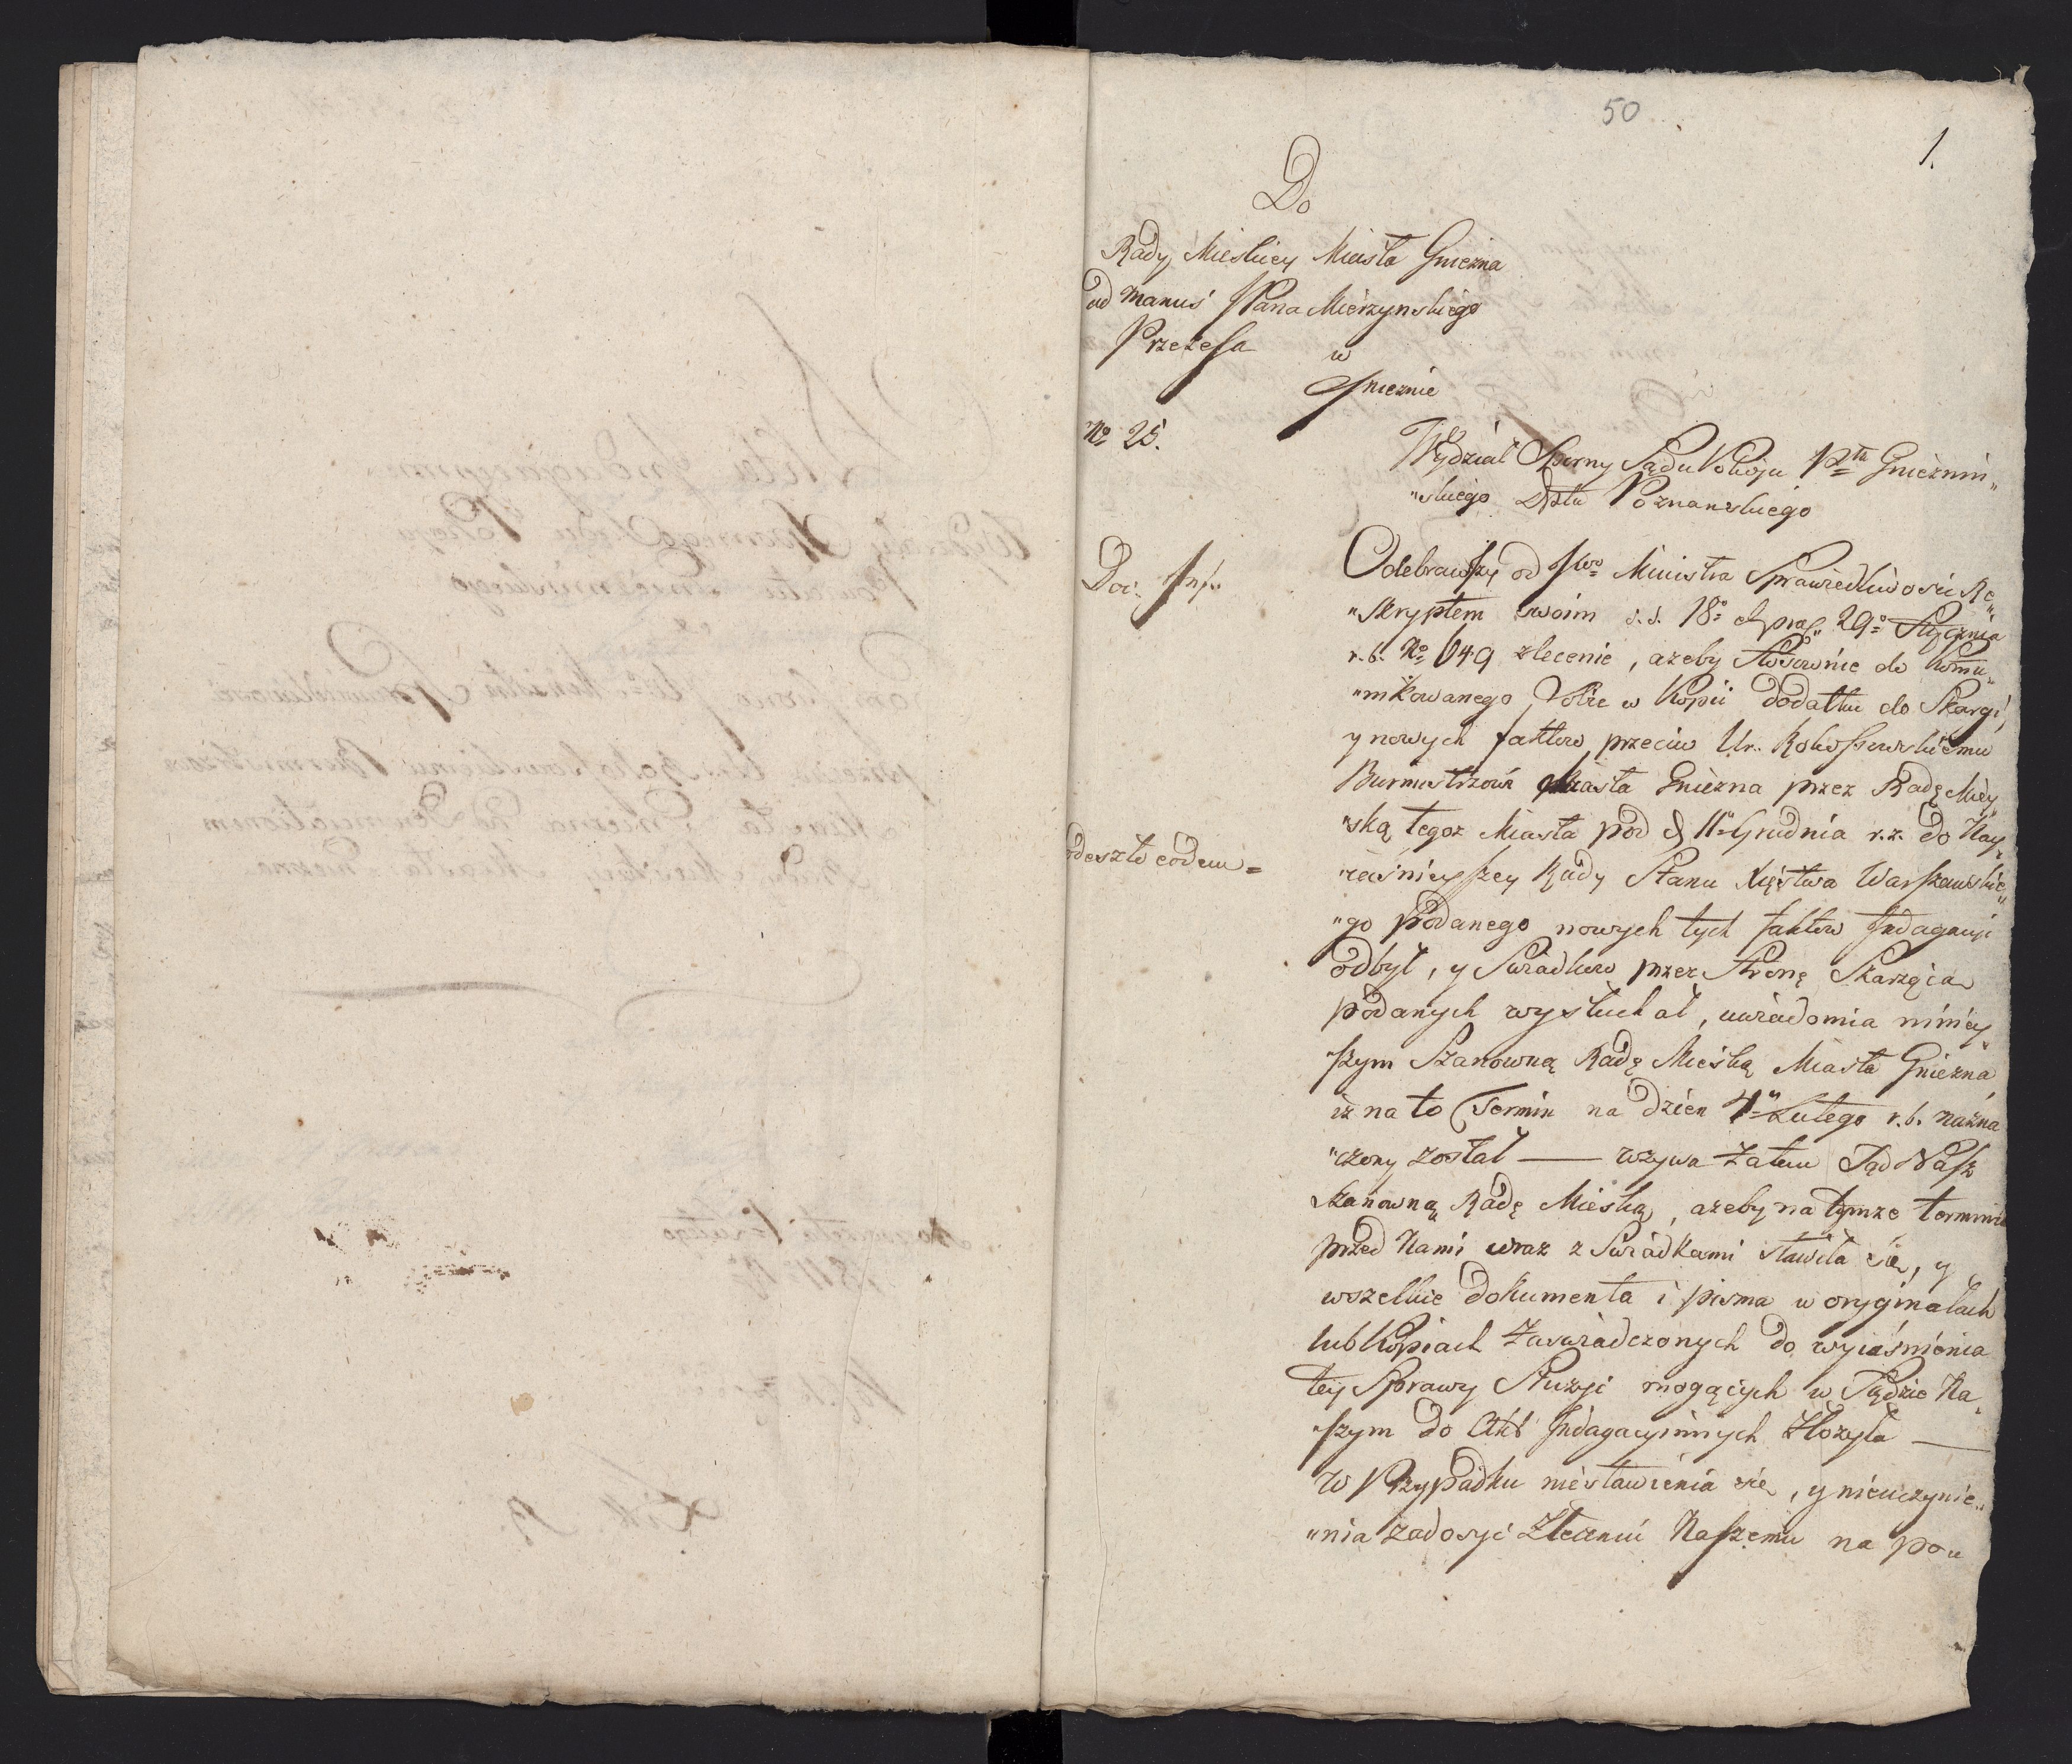 50
1.
Do
Rady Mieskiey Miasta Gniezna
ad manus JPana Mierzynskiego
Prezesa w
Gnieznie
No 25.
Wydział Sporny Sądu Pokoju Pttu Gnieznin„
„skiego Dptu Poznanskiego
Odebrawszy od JWo Ministra Sprawiedliwosci Re„
„skryptem swoim d. d. 18o 29o Stycznia
r. b. No 649 zlecenie, azeby stosownie do Komu„
„nikowanego Sobie w Kopii dodatku do Skargi,
y nowych faktow przeciw Ur. Rokossowskiemu
Burmistrzowi Miasta Gniezna przez Radę Miey„
„ską tegoz Miasta pod d 11o Grudnia r. z. do Nay„
„iasnieyszey Rady Stanu Xięstwa Warszawskie„
„go podanego nowych tych faktow Indagacyi
odbył, y Swiadkow przez Stronę Skarzącą
podanych wysłuchał, uwiadomia niniey„
szym Szanowną Radę Mieską Miasta Gniezna
iz na to Termin na dzien 4o Lutego r. b. nazna
„czony został — wzywa zatem Sąd Nasz
Szanowną Radę Mieską, azeby na tymze terminie
przed Nami wraz z Swiadkami stawiła się, y
wszelkie dokumenta i pisma w oryginałach
lub Kopiach zaswiadczonych do wyiasnienia
tey Sprawy Służyć mogących w Sądzie Na„
szym do Akt Indagacyinnych złozyła —
W Przypadku niestawienia się, y nieuczynie„
„nia zadosyć Zleceniu Naszemu na po„
odeszło eodem =